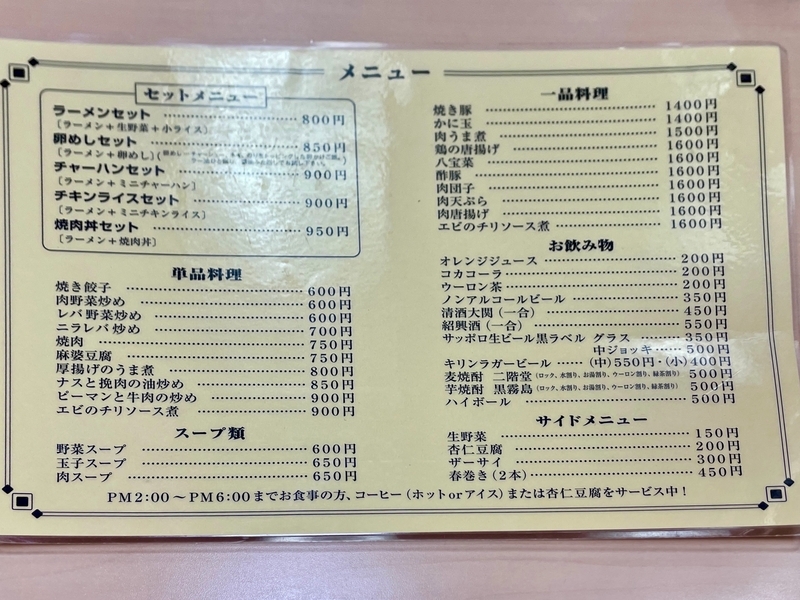 メニュー
セットメニュー
ラーメンセット 800円
〔ラーメン+生野菜+小ライス〕
卵めしセット 850円
〔ラーメン+卵めし〕
チャーハンセット 900円
〔ラーメン+ミニチャーハン〕
チキンライスセット 900円
〔ラーメン+ミニチキンライス〕
焼肉丼セット 950円
〔ラーメン+焼肉丼〕
単品料理
焼き餃子 600円
肉野菜炒め 600円
レバ野菜炒め 600円
ニラレバ炒め 700円
焼肉 750円
麻婆豆腐 750円
厚揚げのうま煮 800円
ナスと挽肉の油炒め 850円
ピーマンと牛肉の炒め 900円
エビのチリソース煮 900円
スープ類
野菜スープ 600円
玉子スープ 650円
肉スープ 650円
一品料理
焼き豚 1400円
かに玉 1400円
肉うま煮 1500円
鶏の唐揚げ 1600円
八宝菜 1600円
酢豚 1600円
肉団子 1600円
肉天ぷら 1600円
肉唐揚げ 1600円
エビのチリソース煮 1600円
お飲み物
オレンジジュース 200円
コカコーラ 200円
ウーロン茶 200円
ノンアルコールビール 350円
清酒大関(一合) 450円
紹興酒(一合) 550円
サッポロ生ビール黒ラベル グラス 350円
中ジョッキ 500円
キリンラガービール (中)550円・(小)400円
麦焼酎 二階堂(ロック、水割り、お湯割り、ウーロン割り、緑茶割り) 500円
芋焼酎 黒霧島(ロック、水割り、お湯割り、ウーロン割り、緑茶割り) 500円
ハイボール 500円
サイドメニュー
生野菜 150円
杏仁豆腐 200円
ザーサイ 300円
春巻き(2本) 450円
PM2:00~PM6:00までお食事の方、コーヒー(ホットorアイス)または杏仁豆腐をサービス中!